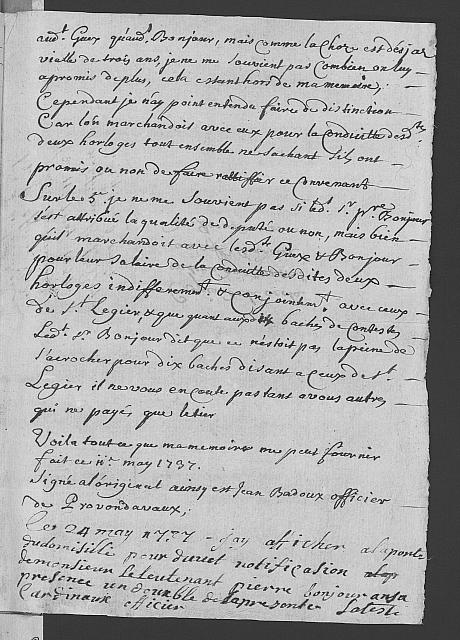 aud.t Grux quaud.t Bonjour, mais comme la Chose est desja
vielle de trois ans, je ne me souvient pas Combien on luy
a promis de plus, cela estant hors de ma memoire,
Cependant je n'ay point entendu faire de distinction
Car lon marchandois avec eux pour la Conduitte desd.ttes
deux horloges tout ensemble ne sachant s'ils ont
promis ou non de faire rattiffier ce Convenant
Sur le 5.e je ne me souvient pas si led.t S.r p.rre Bonjour
s'est attribué la qualité de deputé ou non, mais bien
qu'il marchandoit avec lesd.ts Grux & Bonjour
pour leur salaire de la Conduitte desdites deux
horloges indifferem.t & conjointem.t avec ceux
de S.t Legier, & que quant aux dix baches de Contestes
Led.t S.r Bonjour dit que ce n'estoit pas la peine de
s'acrocher pour dix baches disant a Ceux de S.t
Legier il ne vous en coute pas tant a vous autres,
qui ne payés que le tier
Voila tout ce que ma memoire me peut fournir
fait ce 11.e may 1737.
Signé a l'original ainsy est Jean Badoux officier
de Provondavaux;
les 24 may 1737 - jay afficher a la porte
du domisille pour dueit notification
de monsieur le leutenant pierre bonjour ansa
presence un double de la presente
Cardinaux officier